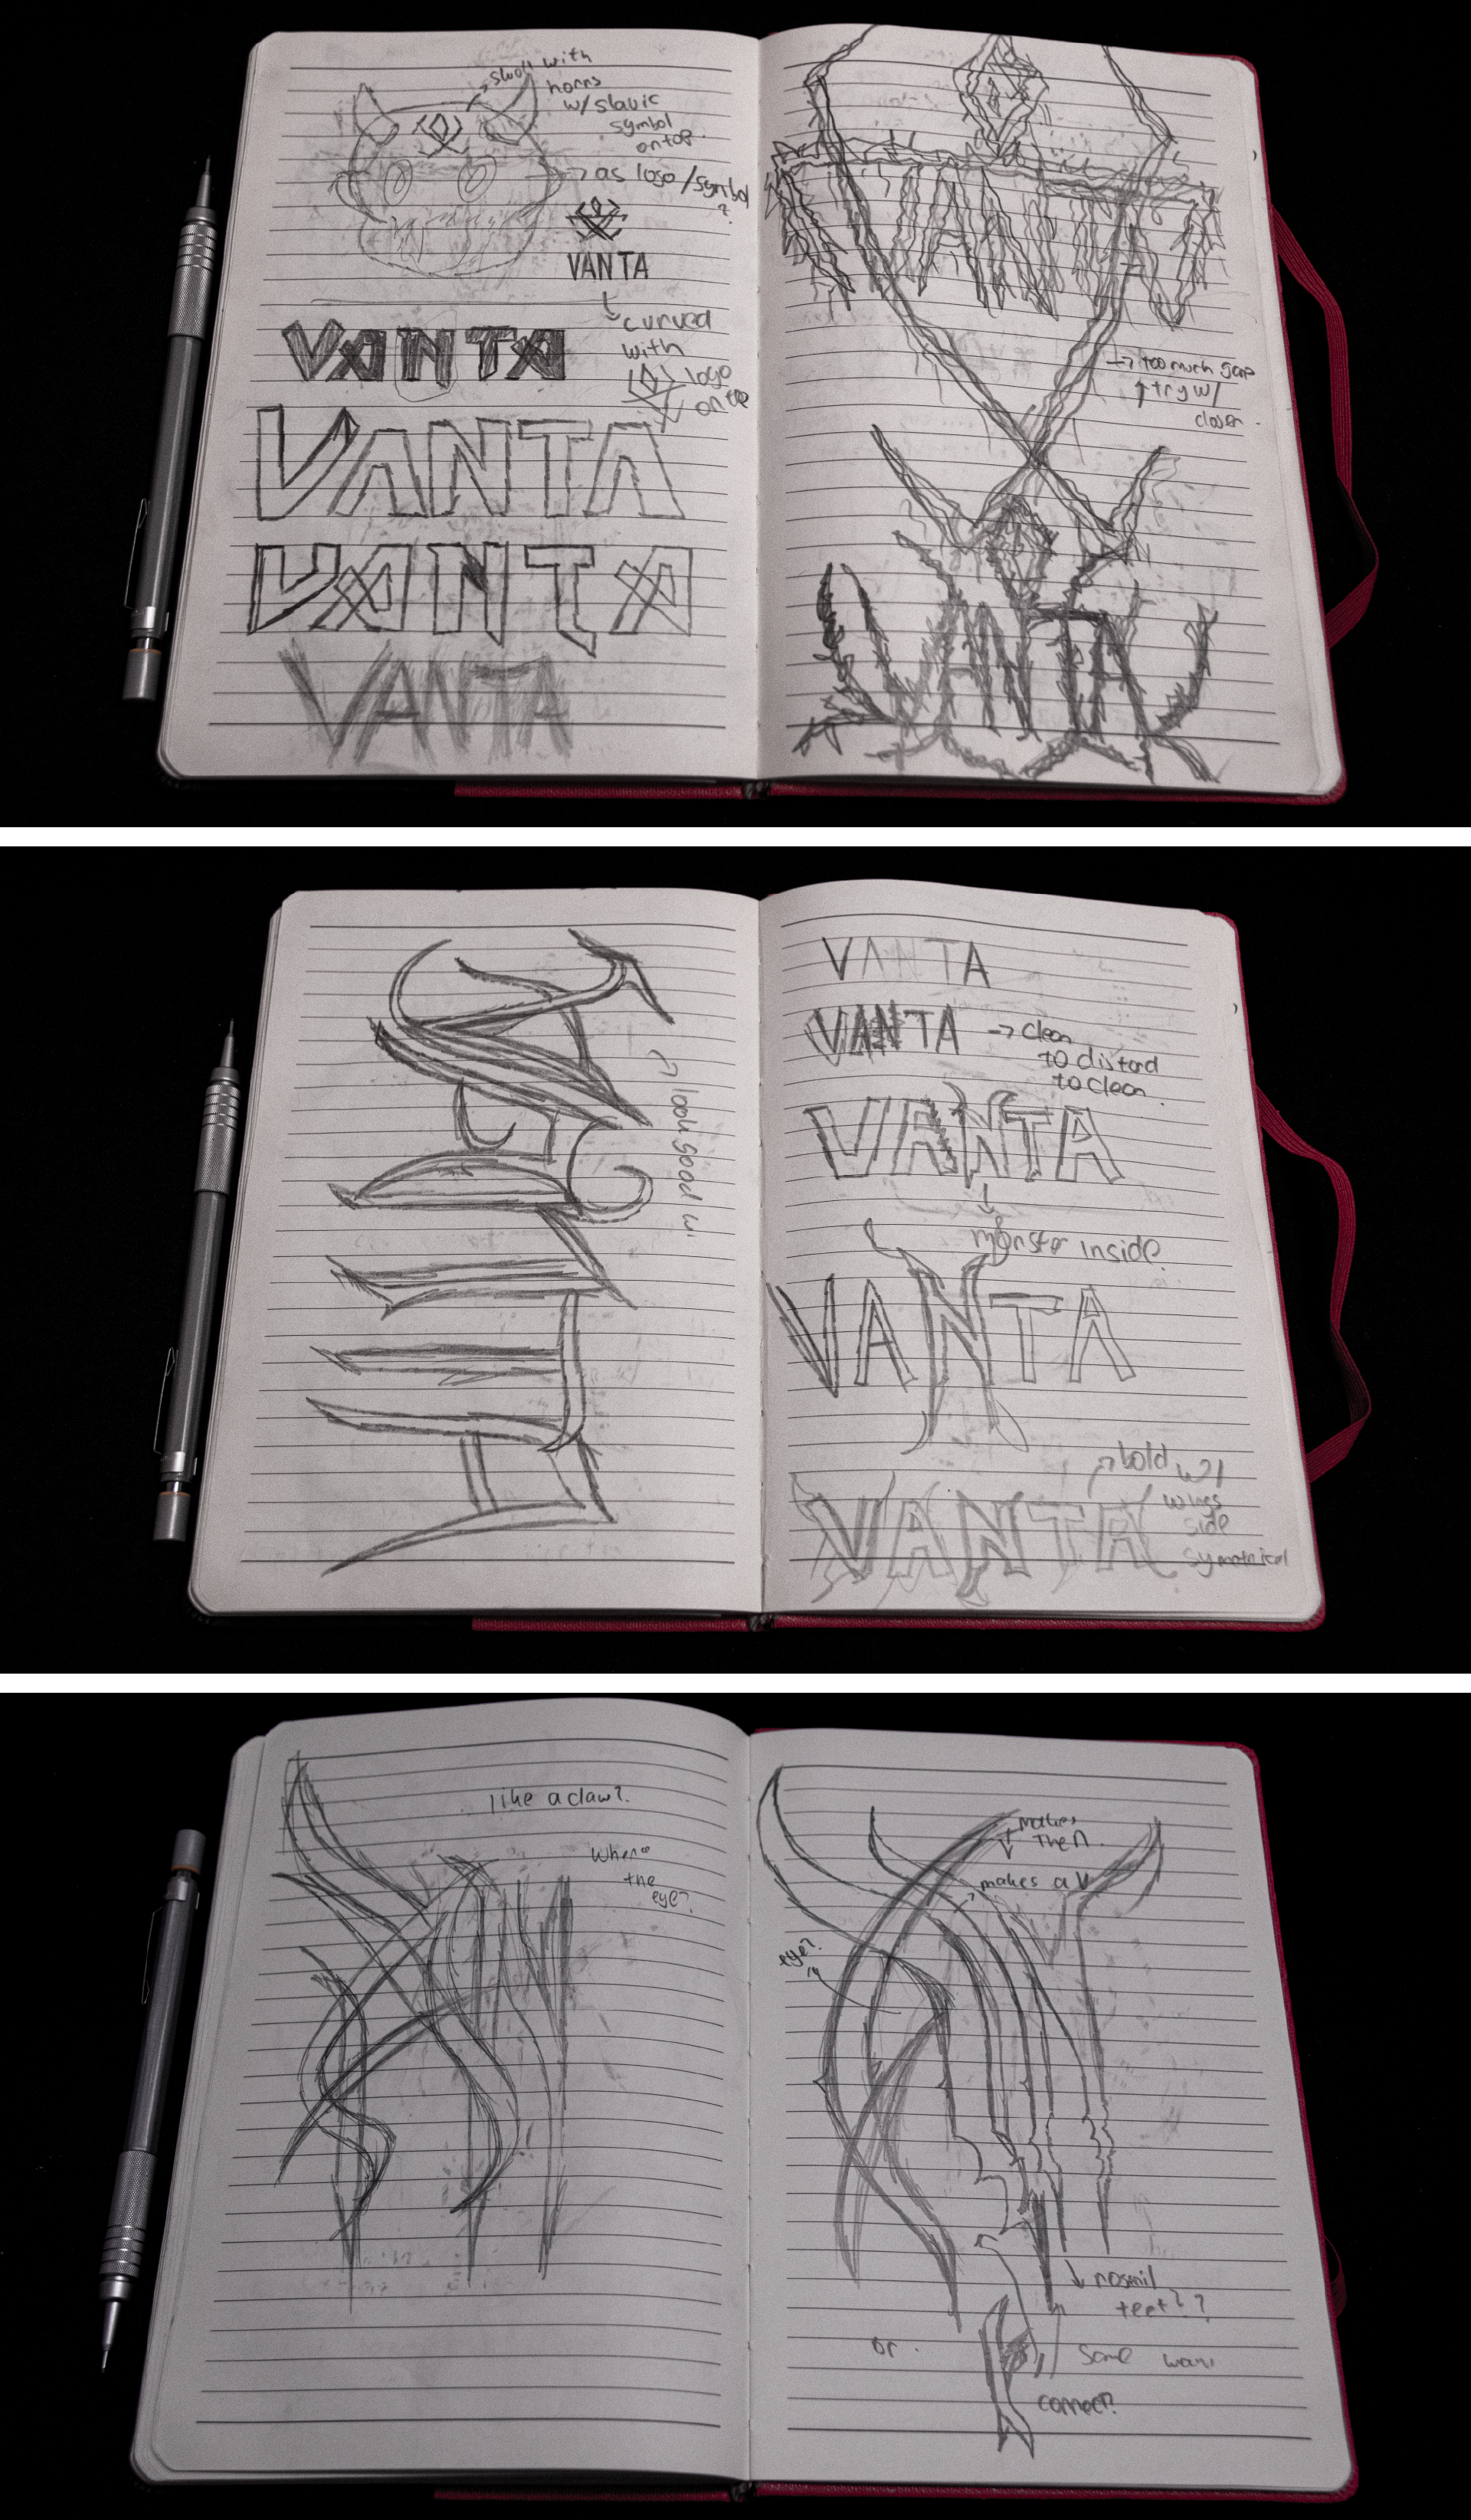 skull with
horns
w/ slavic
symbol
on top.
→ as logo/symbol
?
VANTA
curved
with
logo
on top
VANTA
VANTA
VANTA
VANTA
VANTA
→ too much gap
↑ try w/
closer.
VANTA
VANTA
look good w/
VANTA
VANTA → clean
to distord
to clean.
VANTA
monster inside.
VANTA
bold w/
wings
side
symetrical
VANTA
like a claw?
Where
the
eye?
makes
The A.
makes a V
eye?
nostril
teet??
or.
some way
connect?